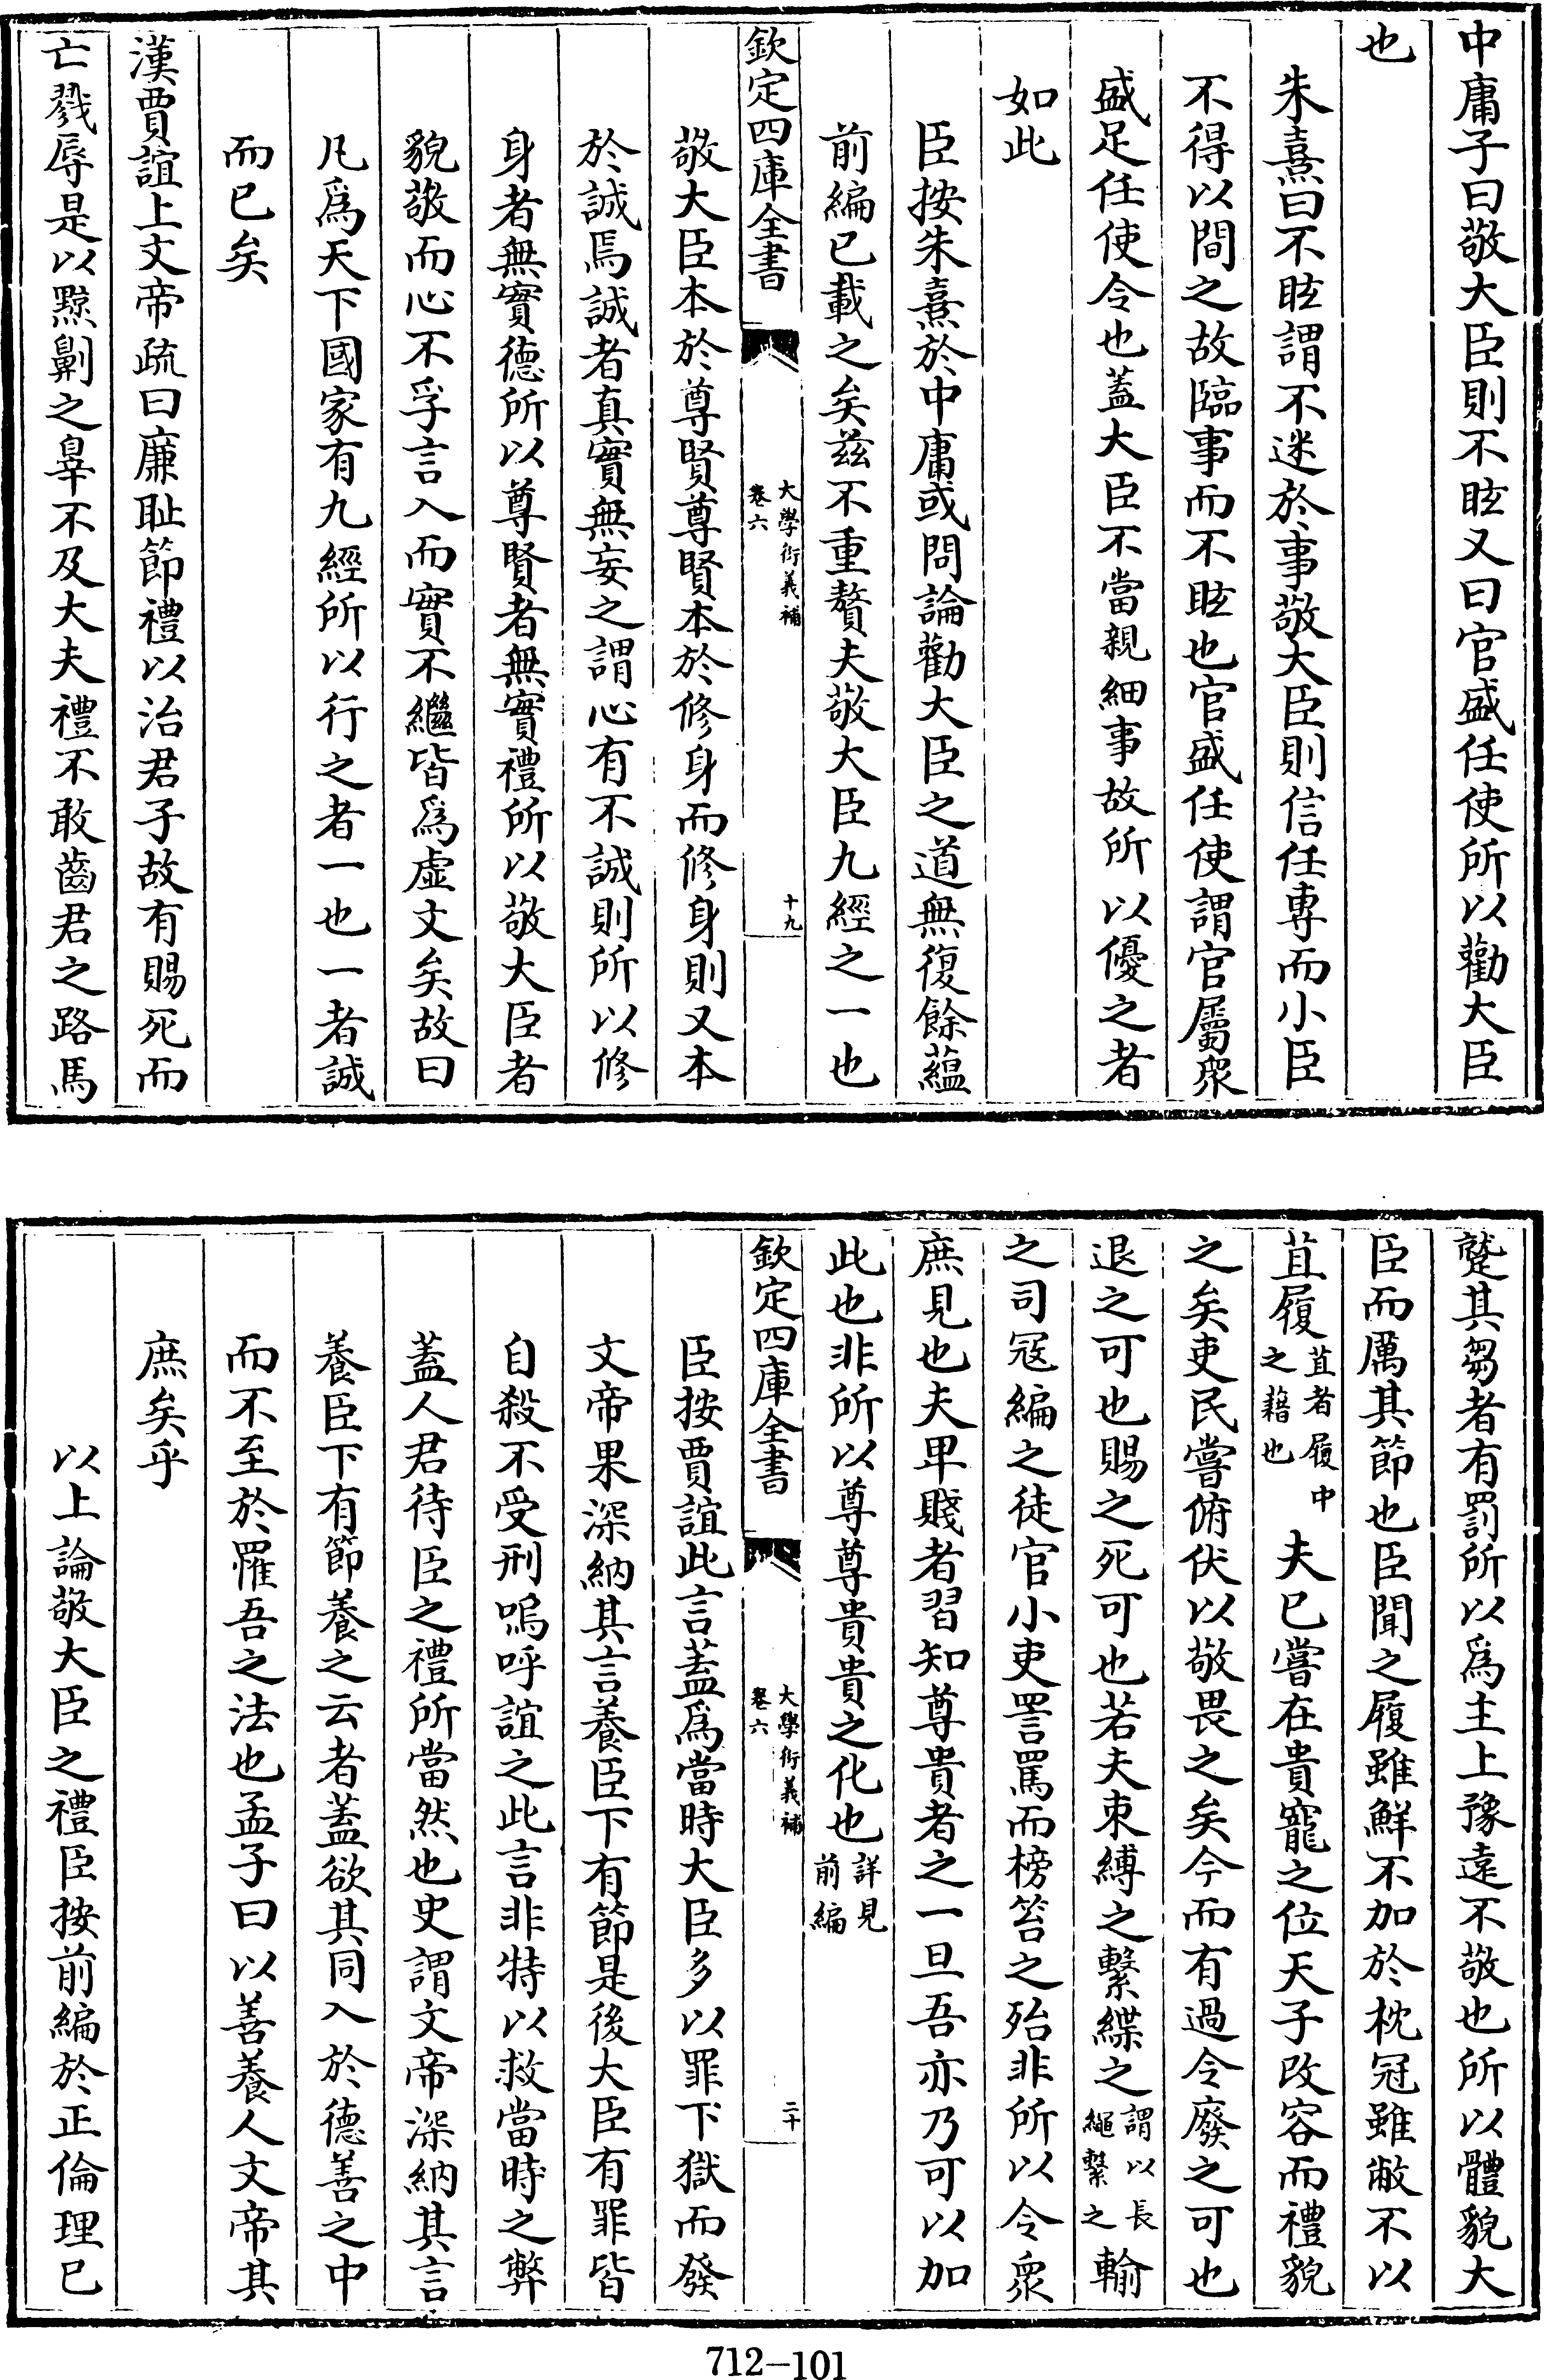 中庸子曰敬大臣則不眩又曰官盛任使所以勸大臣
也
朱熹曰不眩謂不迷於事敬大臣則信任專而小臣
不得以間之故臨事而不眩也官盛任使謂官屬衆
盛足任使令也蓋大臣不當親細事故所以優之者
如此
臣按朱熹於中庸或問論勸大臣之道無復餘蘊
前編已載之矣茲不重贅夫敬大臣九經之一也
欽定四庫全書
大學衍義補
卷六
十九
敬大臣本於尊賢尊賢本於修身而修身則又本
於誠焉誠者真實無妄之謂心有不誠則所以修
身者無實德所以尊賢者無實禮所以敬大臣者
貌敬而心不孚言入而實不繼皆爲虛文矣故曰
凡爲天下國家有九經所以行之者一也一者誠
而已矣
漢賈誼上文帝疏曰廉恥節禮以治君子故有賜死而
亡戮辱是以黥劓之辠不及大夫禮不敢齒君之路馬
蹵其芻者有罰所以爲主上豫遠不敬也所以體貌大
臣而厲其節也臣聞之履雖鮮不加於枕冠雖敝不以
苴履苴者履中之藉也夫已嘗在貴寵之位天子改容而禮貌
之矣吏民嘗俯伏以敬畏之矣今而有過令廢之可也
退之可也賜之死可也若夫束縛之繫緤之謂以長繩繫之輸
之司寇編之徒官小吏詈罵而榜笞之殆非所以令衆
庶見也夫卑賤者習知尊貴者之一旦吾亦乃可以加
此也非所以尊尊貴貴之化也詳見前編
欽定四庫全書
大學衍義補
卷六
二十
臣按賈誼此言蓋爲當時大臣多以罪下獄而發
文帝果深納其言養臣下有節是後大臣有罪皆
自殺不受刑嗚呼誼之此言非特以救當時之弊
蓋人君待臣之禮所當然也史謂文帝深納其言
養臣下有節養之云者蓋欲其同入於德善之中
而不至於罹吾之法也孟子曰以善養人文帝其
庶矣乎
以上論敬大臣之禮臣按前編於正倫理已
712-101